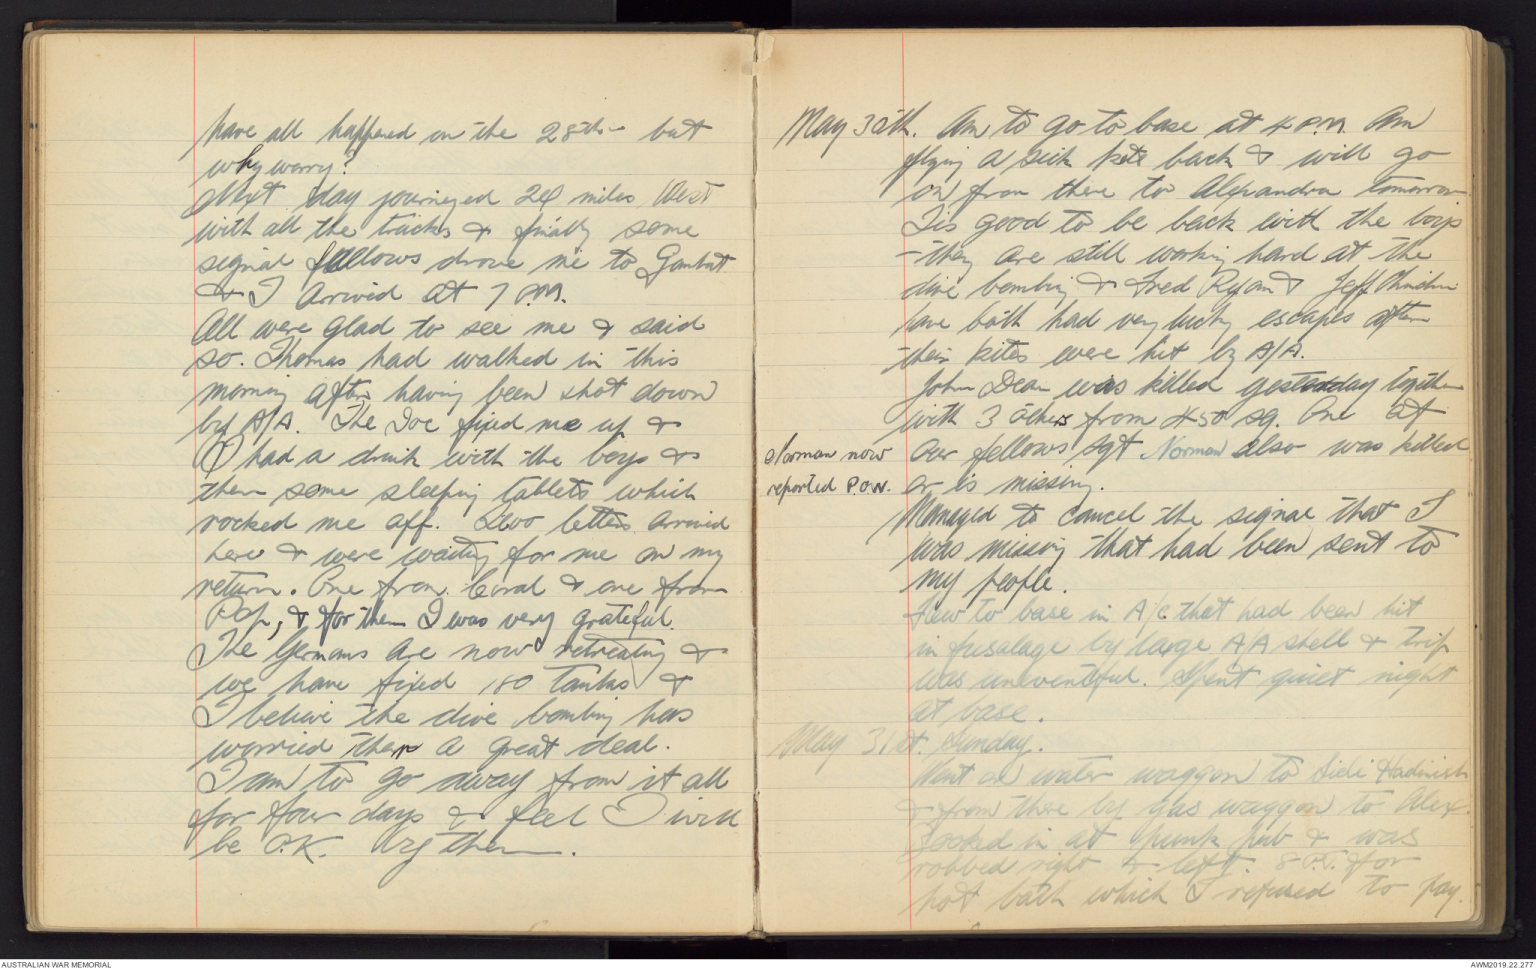 have all happened on the 28th - but
why worry?
Next day journeyed 20 miles West
with all the trucks & finally some
signal fellows drove me to Gambut
& I arrived at 7 P.M.
All were glad to see me & said
so. Thomas had walked in this
morning after having been shot down
by A/A. The Doc fixed me up &
I had a drink with the boys &
then some sleeping tablets which
rocked me off. Two letters arrived
here & were waiting for me on my
return. One from Coral & one from
Pop, & for them I was very grateful.
The Germans are now retreating &
we have fixed 180 tanks &
I believe the dive bombing has
worried them a great deal.
I am to go away from it all
for four days & feel I will
be O.K. by then.
May 30th. Am to go to base at 4 P.M. Am
flying a sick kite back & will go
on from there to Alexandria tomorrow
Tis good to be back with the boys
- they are still working hard at the
dive bombing & Fred Ryan & Jeff
have both had very lucky escapes after
their kites were hit by A/A.
John Dean was killed yesterday together
with 3 others from 450 sq. One of
our fellows Sgt Norman also was killed
or is missing.
Norman now
reported P.O.W.
Managed to cancel the signal that I
was missing that had been sent to
my people.
Flew to base in A/C that had been hit
in fusalage by large A/A shell & trip
was uneventful. Spent quiet night
at base.
May 31st. Sunday.
Went on water waggon to Sidi Hadinish
& from there by gas waggon to Alex.
Booked in at punk pub & was
robbed right & left. 8 P.T. for
hot bath which I refused to pay.
AUSTRALIAN WAR MEMORIAL
AWM2019.22.277